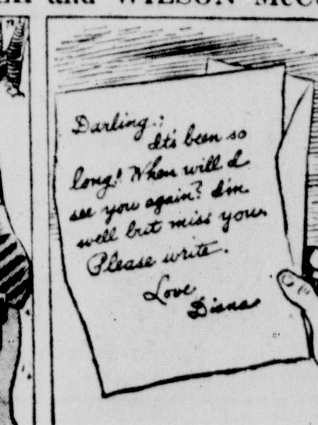 and WILSON McC
Darling:
It's been so
long! When will I
see you again? I'm
well but miss you.
Please write.
Love
Diana